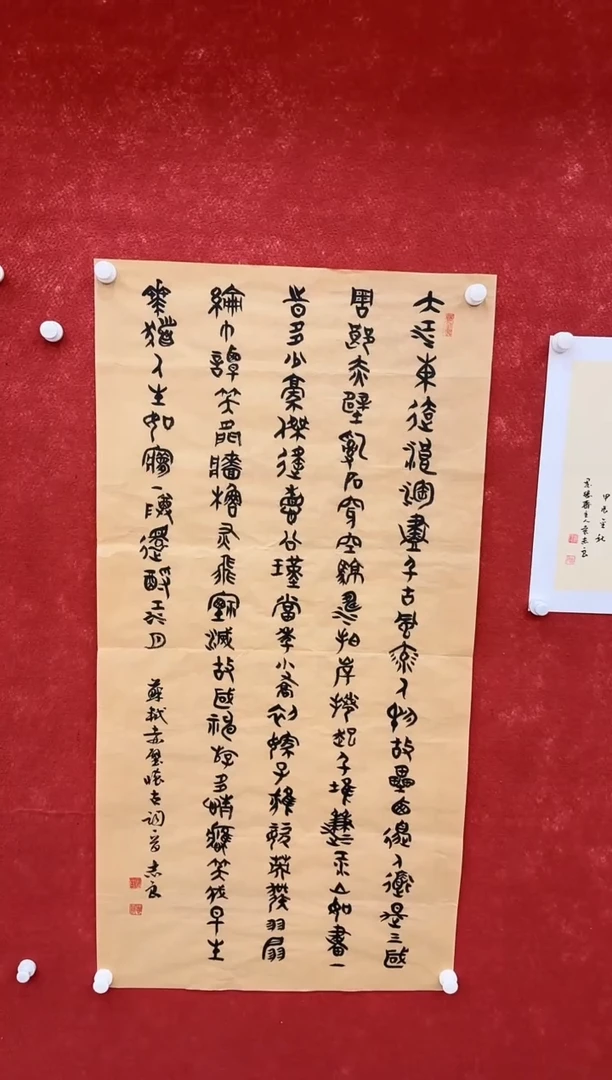 大江東去浪淘盡千古風流人物故壘西邊人道是三國
周郎赤壁亂石穿空驚濤拍岸捲起千堆雪江山如畫一
時多少豪傑遙想公瑾當年小喬初嫁了雄姿英發羽扇
綸巾談笑間檣櫓灰飛煙滅故國神游多情應笑我早生
華髮人生如夢一尊還酹江月
蘇軾赤壁懷古詞一首 志良